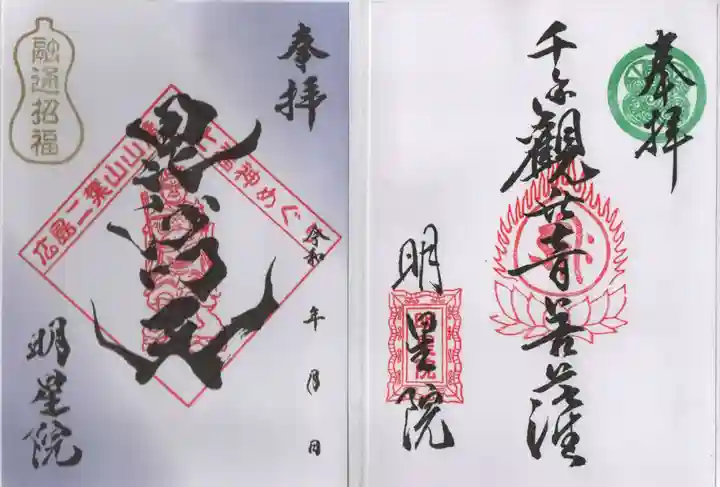 奉拝
融通招福
毘沙門天
広島二葉山山
福神めぐ
令和 年 月 日
明星院
奉拝
千手觀世音菩薩
明星院